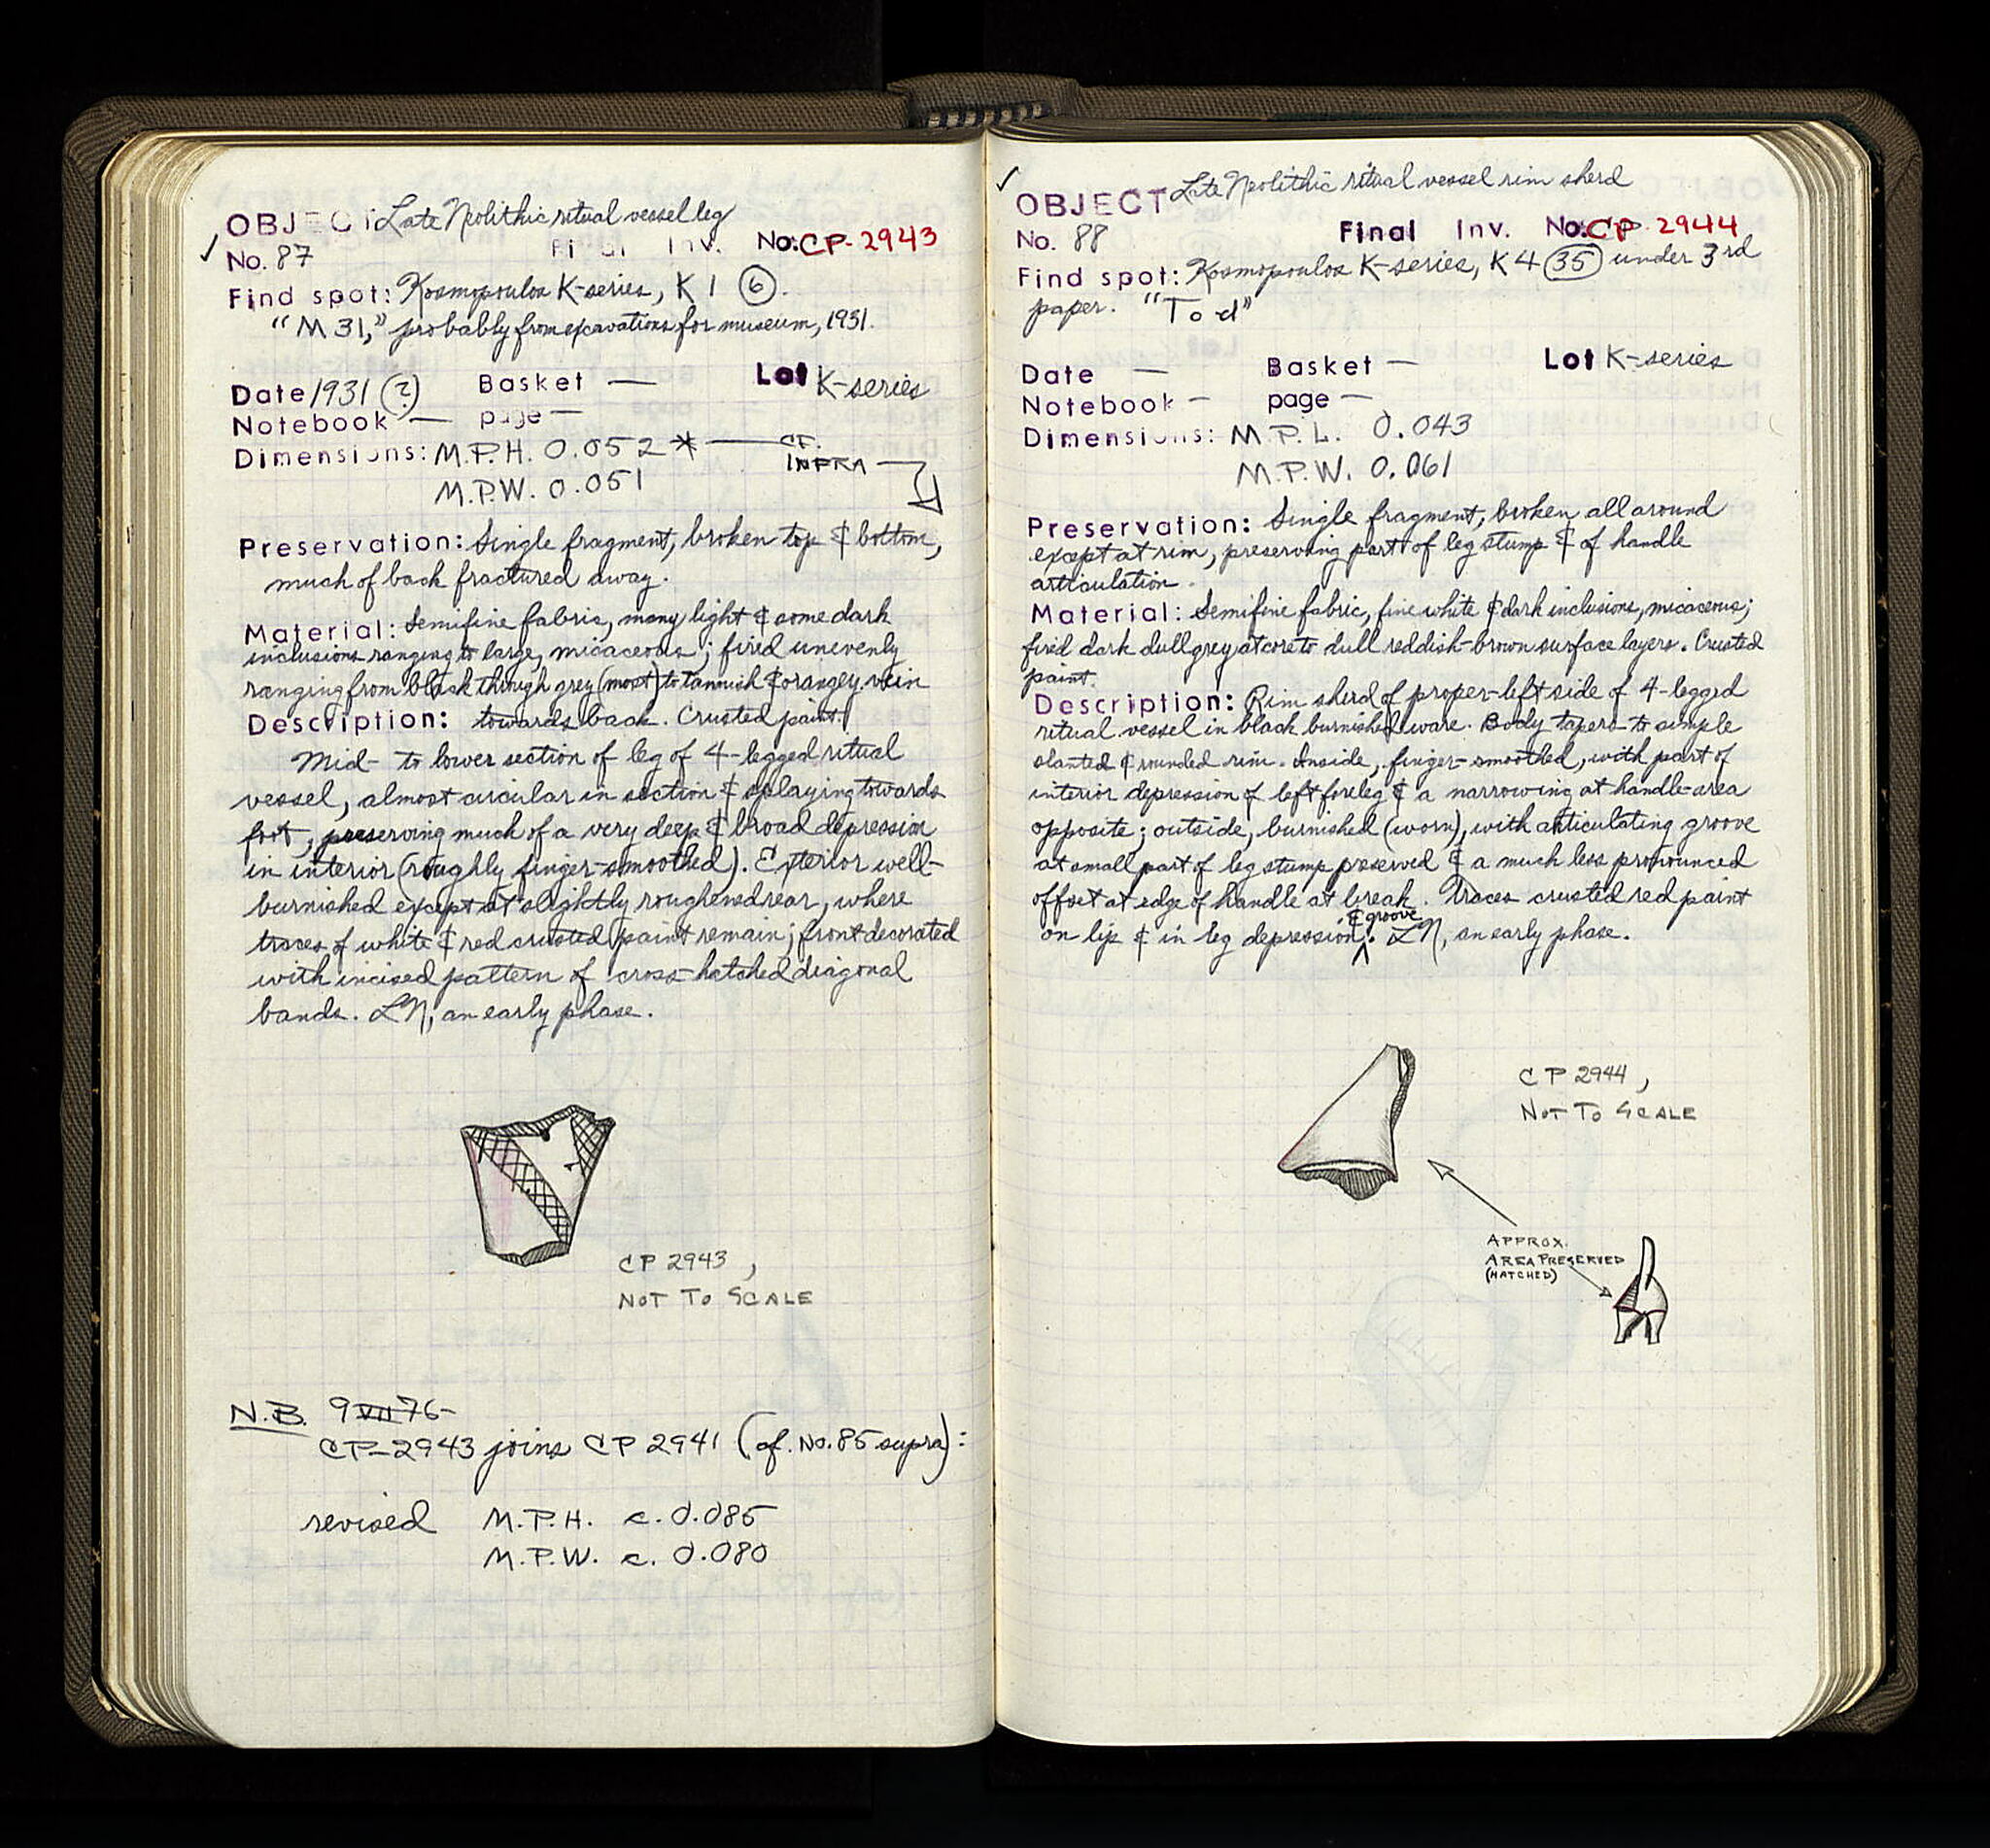 OBJECT Late Neolithic ritual vessel leg
✓ No. 87 Final Inv. No: CP-2943
Find spot: Kosmopoulos K-series, K 1 (6).
"M 31," probably from excavations for museum, 1931.
Date 1931 (?) Basket — Lot K-series
Notebook — page —
Dimensions: M.P.H. 0.052 * — CF. INFRA
M.P.W. 0.051
Preservation: Single fragment, broken top & bottom,
much of back fractured away.
Material: Semifine fabric, many light & some dark
inclusions ranging to large, micaceous; fired unevenly
ranging from black through grey (most) to tannish & orangey vein
Description: towards back. Crusted paint.
Mid- to lower section of leg of 4-legged ritual
vessel, almost circular in section & splaying towards
foot, preserving much of a very deep & broad depression
in interior (roughly finger-smoothed). Exterior well-
burnished except at slightly roughened rear, where
traces of white & red crusted paint remain; front decorated
with incised pattern of cross-hatched diagonal
bands. LN, an early phase.
CP 2943,
NOT TO SCALE
N.B. 9 VII 76-
CP-2943 joins CP 2941 (cf. No. 85 supra):
revised M.P.H. c. 0.085
M.P.W. c. 0.080
✓ OBJECT Late Neolithic ritual vessel rim sherd
No. 88 Final Inv. No: CP 2944
Find spot: Kosmopoulos K-series, K 4 (35) under 3rd
paper. "To d"
Date — Basket — Lot K-series
Notebook – page —
Dimensions: M.P.L. 0.043
M.P.W. 0.061
Preservation: Single fragment, broken all around
except at rim, preserving part of leg stump & of handle
articulation.
Material: Semifine fabric, fine white & dark inclusions, micaceous;
fired dark dull grey at core to dull reddish-brown surface layers. Crusted
paint.
Description: Rim sherd of proper-left side of 4-legged
ritual vessel in black burnished ware. Body tapers to simple
slanted & rounded rim. Inside, finger-smoothed, with part of
interior depression of left foreleg & a narrowing at handle-area
opposite; outside, burnished (worn), with articulating groove
at small part of leg stump preserved & a much less pronounced
offset at edge of handle at break. Traces crusted red paint
on lip & in leg depression & groove. LN, an early phase.
CP 2944,
NOT TO SCALE
APPROX.
AREA PRESERVED
(HATCHED)